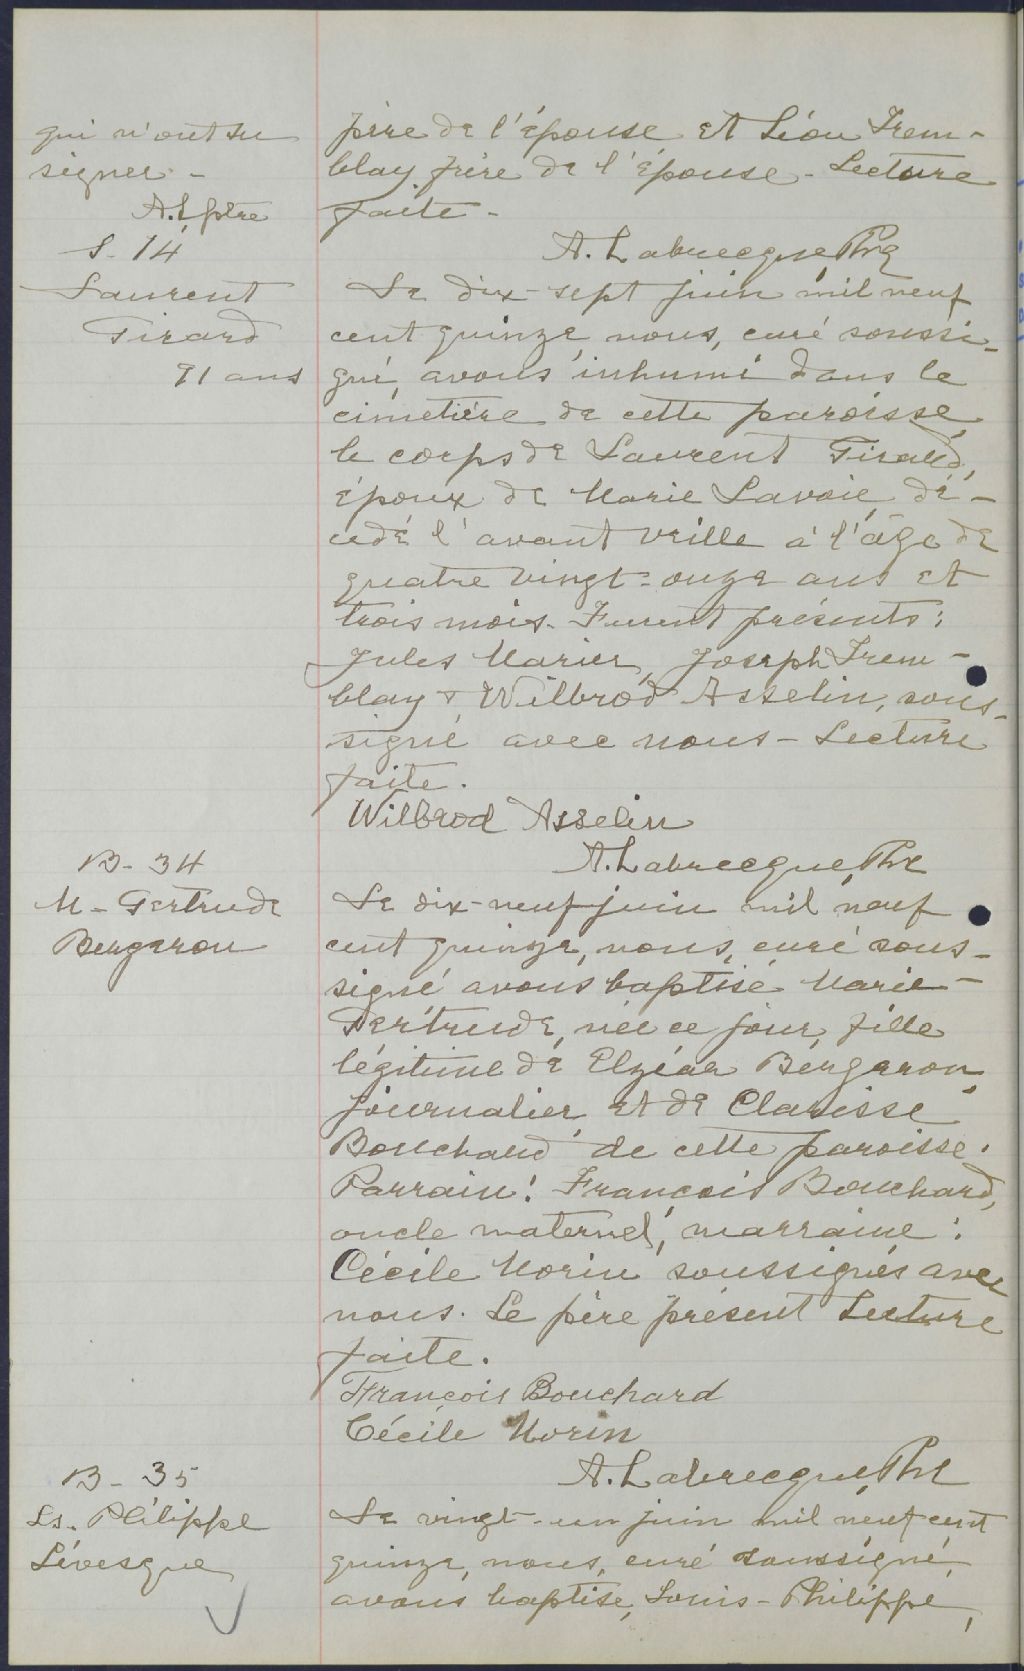 qui n'ont su
signer -
A. L ptre
père de l'épouse et Léon Trem-
blay, frère de l'épouse - Lecture
faite -
A. Labrecque Ptre
S - 14
Laurent
Girard
91 ans
Le dix-sept juin mil neuf
cent quinze, nous, curé soussi-
gné, avons inhumé dans le
cimetière de cette paroisse,
le corps de Laurent Girard,
époux de Marie Lavoie, dé-
cédé l'avant veille à l'âge de
quatre vingt-onze ans et
trois mois. Furent présents:
Jules Marier, Joseph Trem-
blay & Wilbrod Asselin, sous-
signé avec nous - Lecture
faite.
Wilbrod Asselin
A. Labrecque, Ptre
B - 34
M - Gertrude
Bergeron
Le dix-neuf juin mil neuf
cent quinze, nous, curé sous-
signé avons baptisé Marie-
Gertrude, née ce jour, fille
légitime de Elzéar Bergeron,
journalier, et de Clarisse
Bouchard de cette paroisse.
Parrain: François Bouchard,
oncle maternel, marraine:
Cécile Morin soussignés avec
nous. Le père présent Lecture
faite.
François Bouchard
Cécile Morin
A. Labrecque Ptre
B - 35
Ls. Philippe
Lévesque
Le vingt-un juin mil neuf cent
quinze, nous, curé soussigné,
avons baptisé, Louis-Philippe,